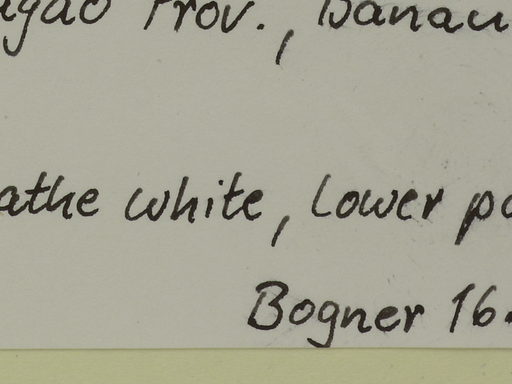 Prov., Banau
athe white, lower po
Bogner 16.